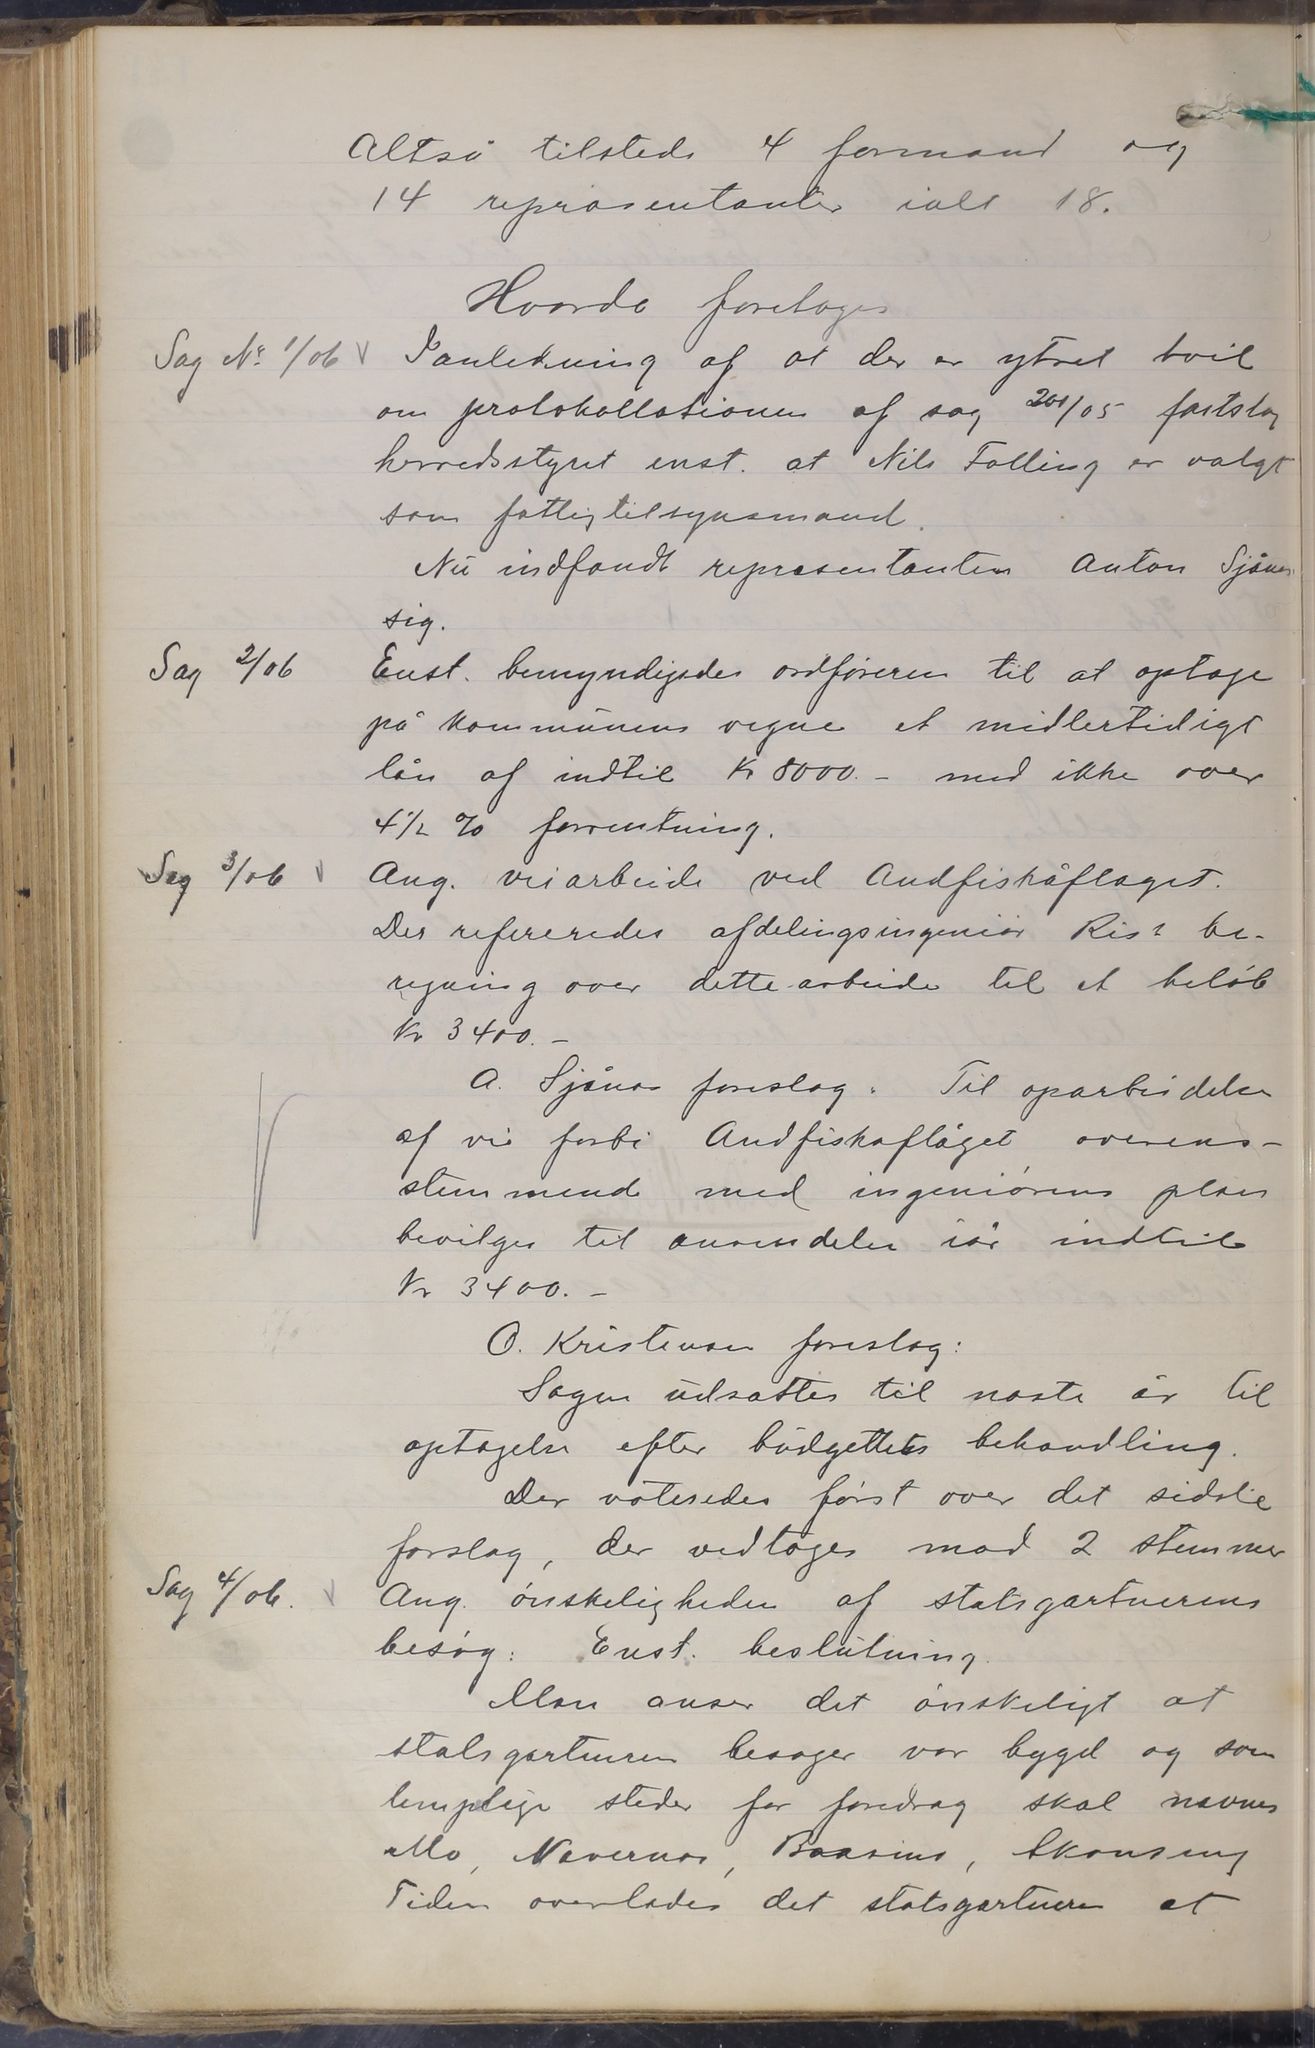 Altså tilstede 4 formænd og
14 repræsentanter ialt 18.
Hvorda foretoges
Sag No 1/06 Ianledning af at der er ytret tvil
om protokollationen af sag 201/05 fastslog
herredsstyret enst. at Nils Følling er valgt
som fattigtilsynsmand.
Nu indfandt repræsentanten Anton Sjånes
sig.
Sag 2/06 Enst. bemyndigedes ordføreren til at optage
på kommunens vegne et midlertidigt
lån af indtil Kr 8000.- med ikke over
4½ % forrentning.
Sag 3/06 Ang. veiarbeide ved Andfiskåflaget.
Der refereredes afdelingsingeniør Ris's be-
regning over dette arbeide til et beløb
Kr 3400.-
A. Sjånes foreslog: Til oparbeidelse
af vei forbi Andfiskaflåget overens-
stemmende med ingeniørens plan
bevilges til anvendelse iår indtil
Kr 3400.-
O. Kristensen foreslog:
Sagen udsættes til næste år til
optagelse efter budgettets behandling.
Der voteredes først over det sidste
forslag, der vedtoges mod 2 stemmer
Sag 4/06. Ang. ønskeligheden af statsgartnerens
besøg: Enst. beslutning.
Man anser det ønskeligt at
statsgartneren besøger vor bygd og som
lempelige steder for foredrag skal nævnes
Mo, Nævernes, Baasmo, Skonseng
Tiden overlades det statsgartneren at